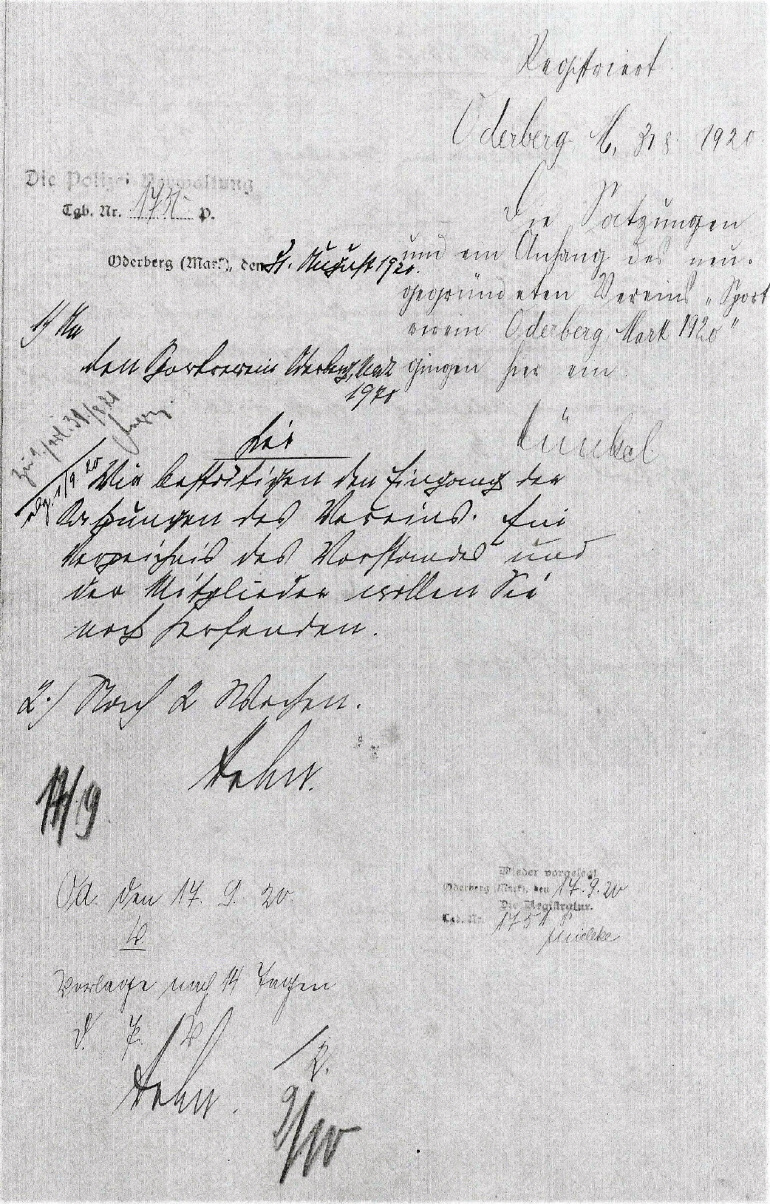 Registriert
Oderberg M. 31 8. 1920
Die Satzungen
und ein Anhang des neu-
gegründeten Vereins „Sport
verein Oderberg Mark 1920"
gingen hier ein
Künkel
Die Polizei-Verwaltung
Tgb. Nr. P.
Oderberg (Mark), den 31. August 1920.
1) An
den Sportverein Oderberg Mark
1920
hier
Wir bestätigen den Eingang der
Satzungen des Vereins. Ein
Verzeichnis des Vorstandes und
der Mitglieder wollen Sie
noch
2.) Nach 2 Wochen.
14/9
Od. den 17. 9. 20.
Vorlage nach 14 Tagen
d. P. V.
2.
9/10
Wieder vorgelegt
Oderberg (Mark), den 17.9.20
Die Registratur.
Tgb. Nr.